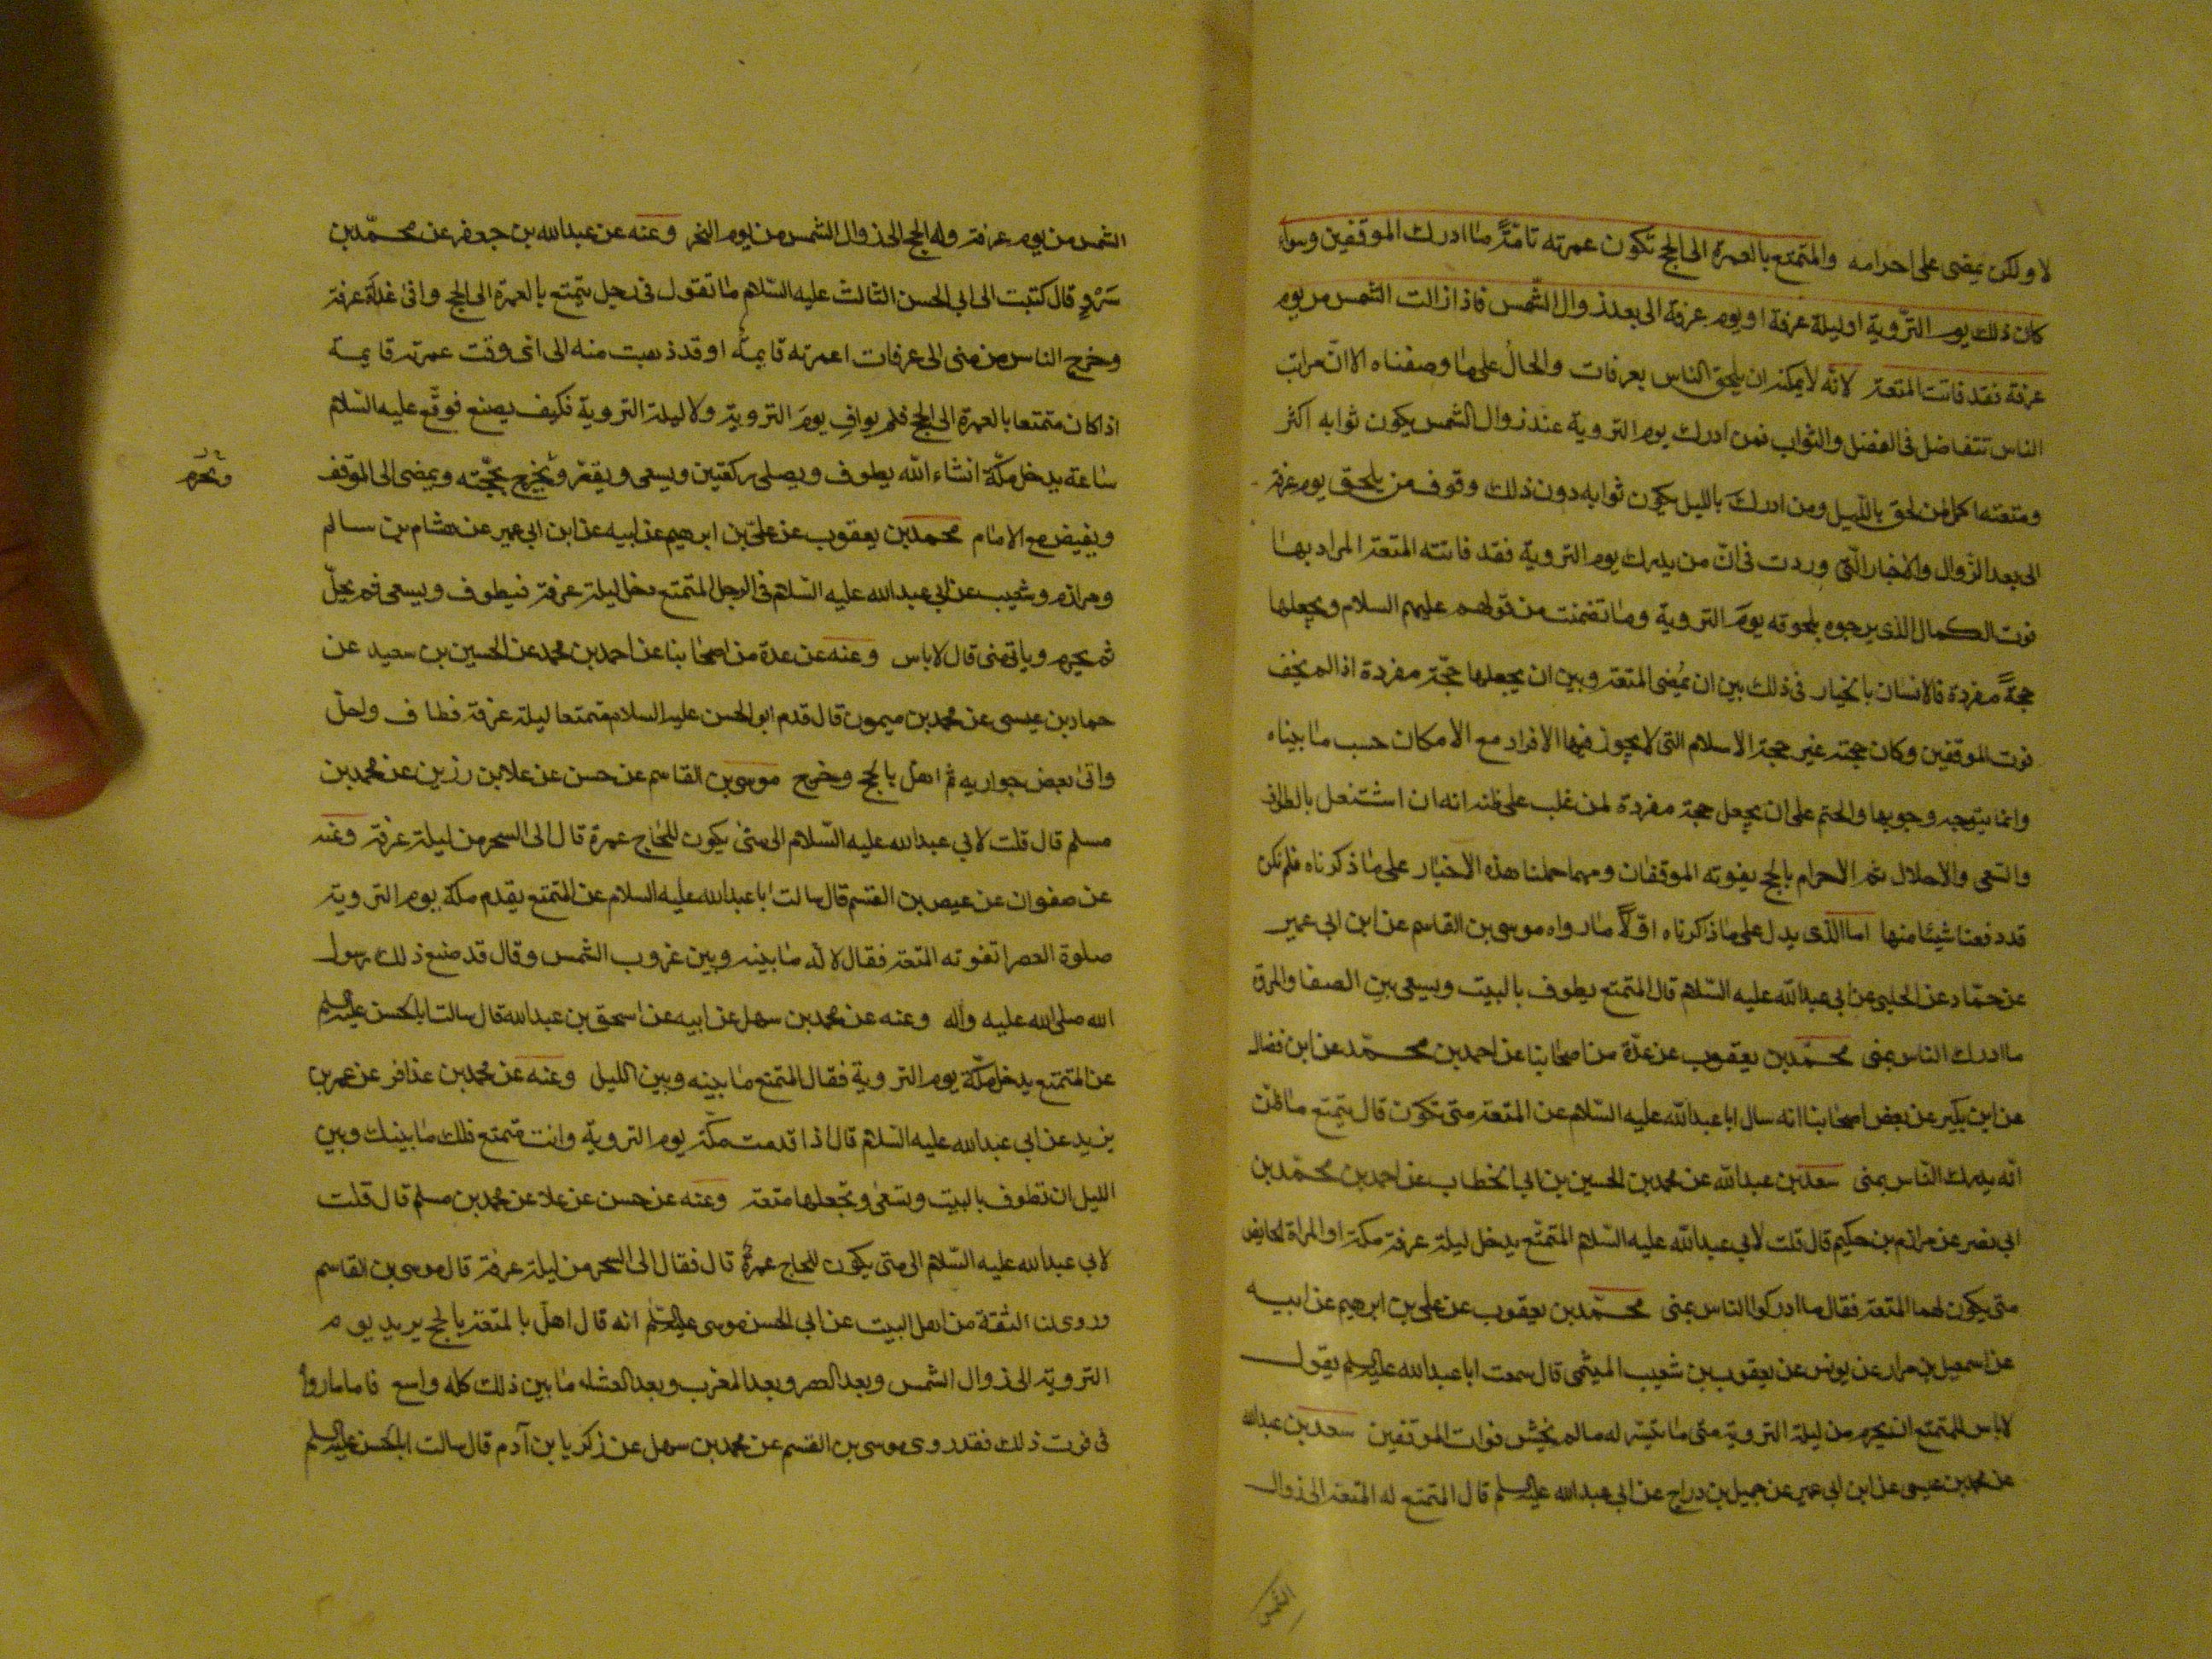 لا ولكن يمضى على احرامه والمتمتع بالعمرة الى الحج تكون عمرته تامّةً ما ادرك الموقفين وسواء
كان ذلك يوم التّروية او ليلة عرفة او يوم عرفة الى بعد زوال الشّمس فاذا زالت الشمس من يوم
عرفة فقد فاتت المتعة لانّه لا يمكنه ان يلحق الناس بعرفات والحال على ما وصفناه الا انّ مراتب
الناس تتفاضل فى الفضل والثواب فمن ادرك يوم التروية عند زوال الشمس يكون ثوابه اكثر
ومتعته اكمل ممن لحق بالليل ومن ادرك بالليل يكون ثوابه دون ذلك وفوق من يلحق يوم عرفة
الى بعد الزّوال والاخبار الّتى وردت فى انّ من يدرك يوم التروية فقد فاتته المتعة المراد بها
فوت الكمال الذى يرجوه بلحوقه يومَ التروية وما تضمنت من قولهم عليهم السلام ويجعلها
حجةً مفردة فالانسان بالخيار فى ذلك بين ان يمُضى المتعة وبين ان يجعلها حجّة مفردة اذا لم يخف
فوت الموقفين وكان حجته غير حجة الاسلام التى لا يجوز فيها الافراد مع الامكان حسب ما بيناه
وانما يتوجه وجوبها والحتم على ان يجعل حجة مفردة لمن غلب على ظنه انه ان اشتغل بالطواف
والسّعى والاحلال ثم الاحرام بالحج يفوته الموقفان ومهما حملنا هذه الاخبار على ما ذكرناه فلم نكن
قد دفعنا شيئا منها اما الّذى يدل على ما ذكرناه اوّلاً ما رواه موسى بن القاسم عن ابن ابى عمير
عن حمّاد عن الحلبى عن ابى عبد الله عليه السّلام قال المتمتع يطوف بالبيت ويسعى بين الصفا والمروة
ما ادرك الناس بمنى محمّد بن يعقوب عن عدّة من اصحابنا عن احمد بن محمّد عن ابن فضال
عن ابن بكير عن بعض اصحابنا انه سال ابا عبد الله عليه السّلام عن المتعة متى تكون قال يتمتع ما ظنّ
انّه يدرك النّاس بمنى سعد بن عبد الله عن محمد بن الحسين بن ابى الخطاب عن احمد بن محمّد بن
ابى نصر عن مرازم بن حكيم قال قلت لابى عبد الله عليه السّلام المتمتّع يدخل ليلة عرفة مكة او المراة الحايض
متى يكون لهما المتعة فقال ما ادركوا الناس بمنى محمّد بن يعقوب عن على بن ابرهيم عن ابيه
عن اسمعيل بن مرار عن يونس عن يعقوب بن شعيب الميثمى قال سمعت ابا عبد الله عليه السلم يقول
لا باس للمتمتع ان يحرم من ليلة التروية متى ما تيسّر له ما لم يخش فوات الموقفين سعد بن عبد الله
عن محمد بن عيسى عن ابن ابى عمير عن جميل بن دراج عن ابى عبد الله عليه السلم قال المتمتع له المتعة الى زوال
الشمس
الشمس من يوم عرفة وله الحج الى زوال الشمس من يوم النحر وعنه عن عبد الله بن جعفر عن محمّد بن
سَرْوٍ قال كتبت الى ابى الحسن الثالث عليه السّلام ما تقول فى رجل يتمتع بالعمرة الى الحج وافى غداة عرفة
وخرج الناس من منى الى عرفات اعمرته قايمة او قد ذهبت منه الى اى وقت عمرته قايمة
اذا كان متمتعا بالعمرة الى الحج فلم يوافِ يومَ التروية ولا ليلة التروية فكيف يصنع فوقّع عليه السّلام
ساعة يدخل مكّة انشاء الله يطوف ويصلى ركعتين ويسعى ويقصّر ويخرج بحجّته ويمضى الى الموقف
ويحرم
ويفيض مع الامام محمد بن يعقوب عن علىّ بن ابرهيم عن ابيه عن ابن ابى عمير عن هشام بن سالم
ومرازم وشعيب عن ابى عبد الله عليه السّلام فى الرجل المتمتع دخل ليلة عرفة فيطوف ويسعى ثم يحلّ
ثم يحرم وياتى منى قال لا باس وعنه عن عدة من اصحابنا عن احمد بن محمد عن الحسين بن سعيد عن
حماد بن عيسى عن محمد بن ميمون قال قدم ابو الحسن عليه السلام متمتعا ليلة عرفة فطاف واحلّ
واتى بعض جواريه ثم اهلّ بالحج وخرج موسى بن القاسم عن حسن عن علا بن رزين عن محمد بن
مسلم قال قلت لابى عبد الله عليه السّلام الى متى يكون للحاج عمرة قال الى السحر من ليلة عرفة وعنه
عن صفوان عن عيص بن القسم قال سالت ابا عبد الله عليه السلام عن المتمتع يقدم مكة يوم التروية
صلوة العصر اتفوته المتعة فقال لا له ما بينه وبين غروب الشمس وقال قد صنع ذلك رسول
الله صلى الله عليه واله وعنه عن محمد بن سهل عن ابيه عن اسحق بن عبد الله قال سالت ابا الحسن عليه السلم
عن المتمتع يدخل مكّة يوم التروية فقال المتمتع ما بينه وبين الليل وعنه عن محمد بن عذافر عن عمر بن
يزيد عن ابى عبد الله عليه السّلام قال اذا قدمت مكّة يوم التروية وانت متمتع فلك ما بينك وبين
الليل ان تطوف بالبيت وتسعى وتجعلها متعة وعنه عن حسن عن علا عن محمد بن مسلم قال قلت
لابى عبد الله عليه السّلام الى متى يكون للحاج عمرة قال فقال الى السحر من ليلة عرفة قال موسى بن القاسم
وروى لنا الثقة من اهل البيت عن ابى الحسن موسى عليه السّلم انه قال اهلّ بالمتعة بالحج يريد يوم
التروية الى زوال الشمس وبعد العصر وبعد المغرب وبعد العشاء ما بين ذلك كله واسع فاما ما روا
فى فوت ذلك فقد روى موسى بن القسم عن محمد بن سهل عن زكريا بن آدم قال سالت ابا الحسن عليه السلم